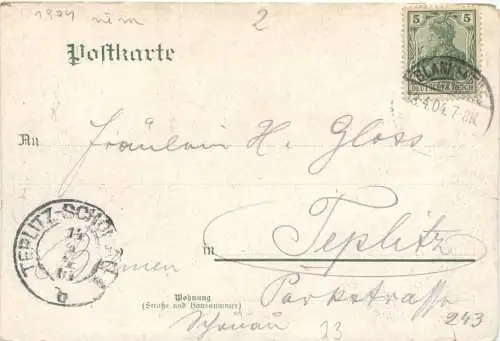 1904
2
Postkarte
5 5
DEUTSCHES REICH
.4.04. 7-8N.
An Fräulein H. Gloss
TEPLITZ-SCHÖNAU
in Teplitz
Wohnung
(Straße und Hausnummer)
Parkstrasse
Schönau 23
243